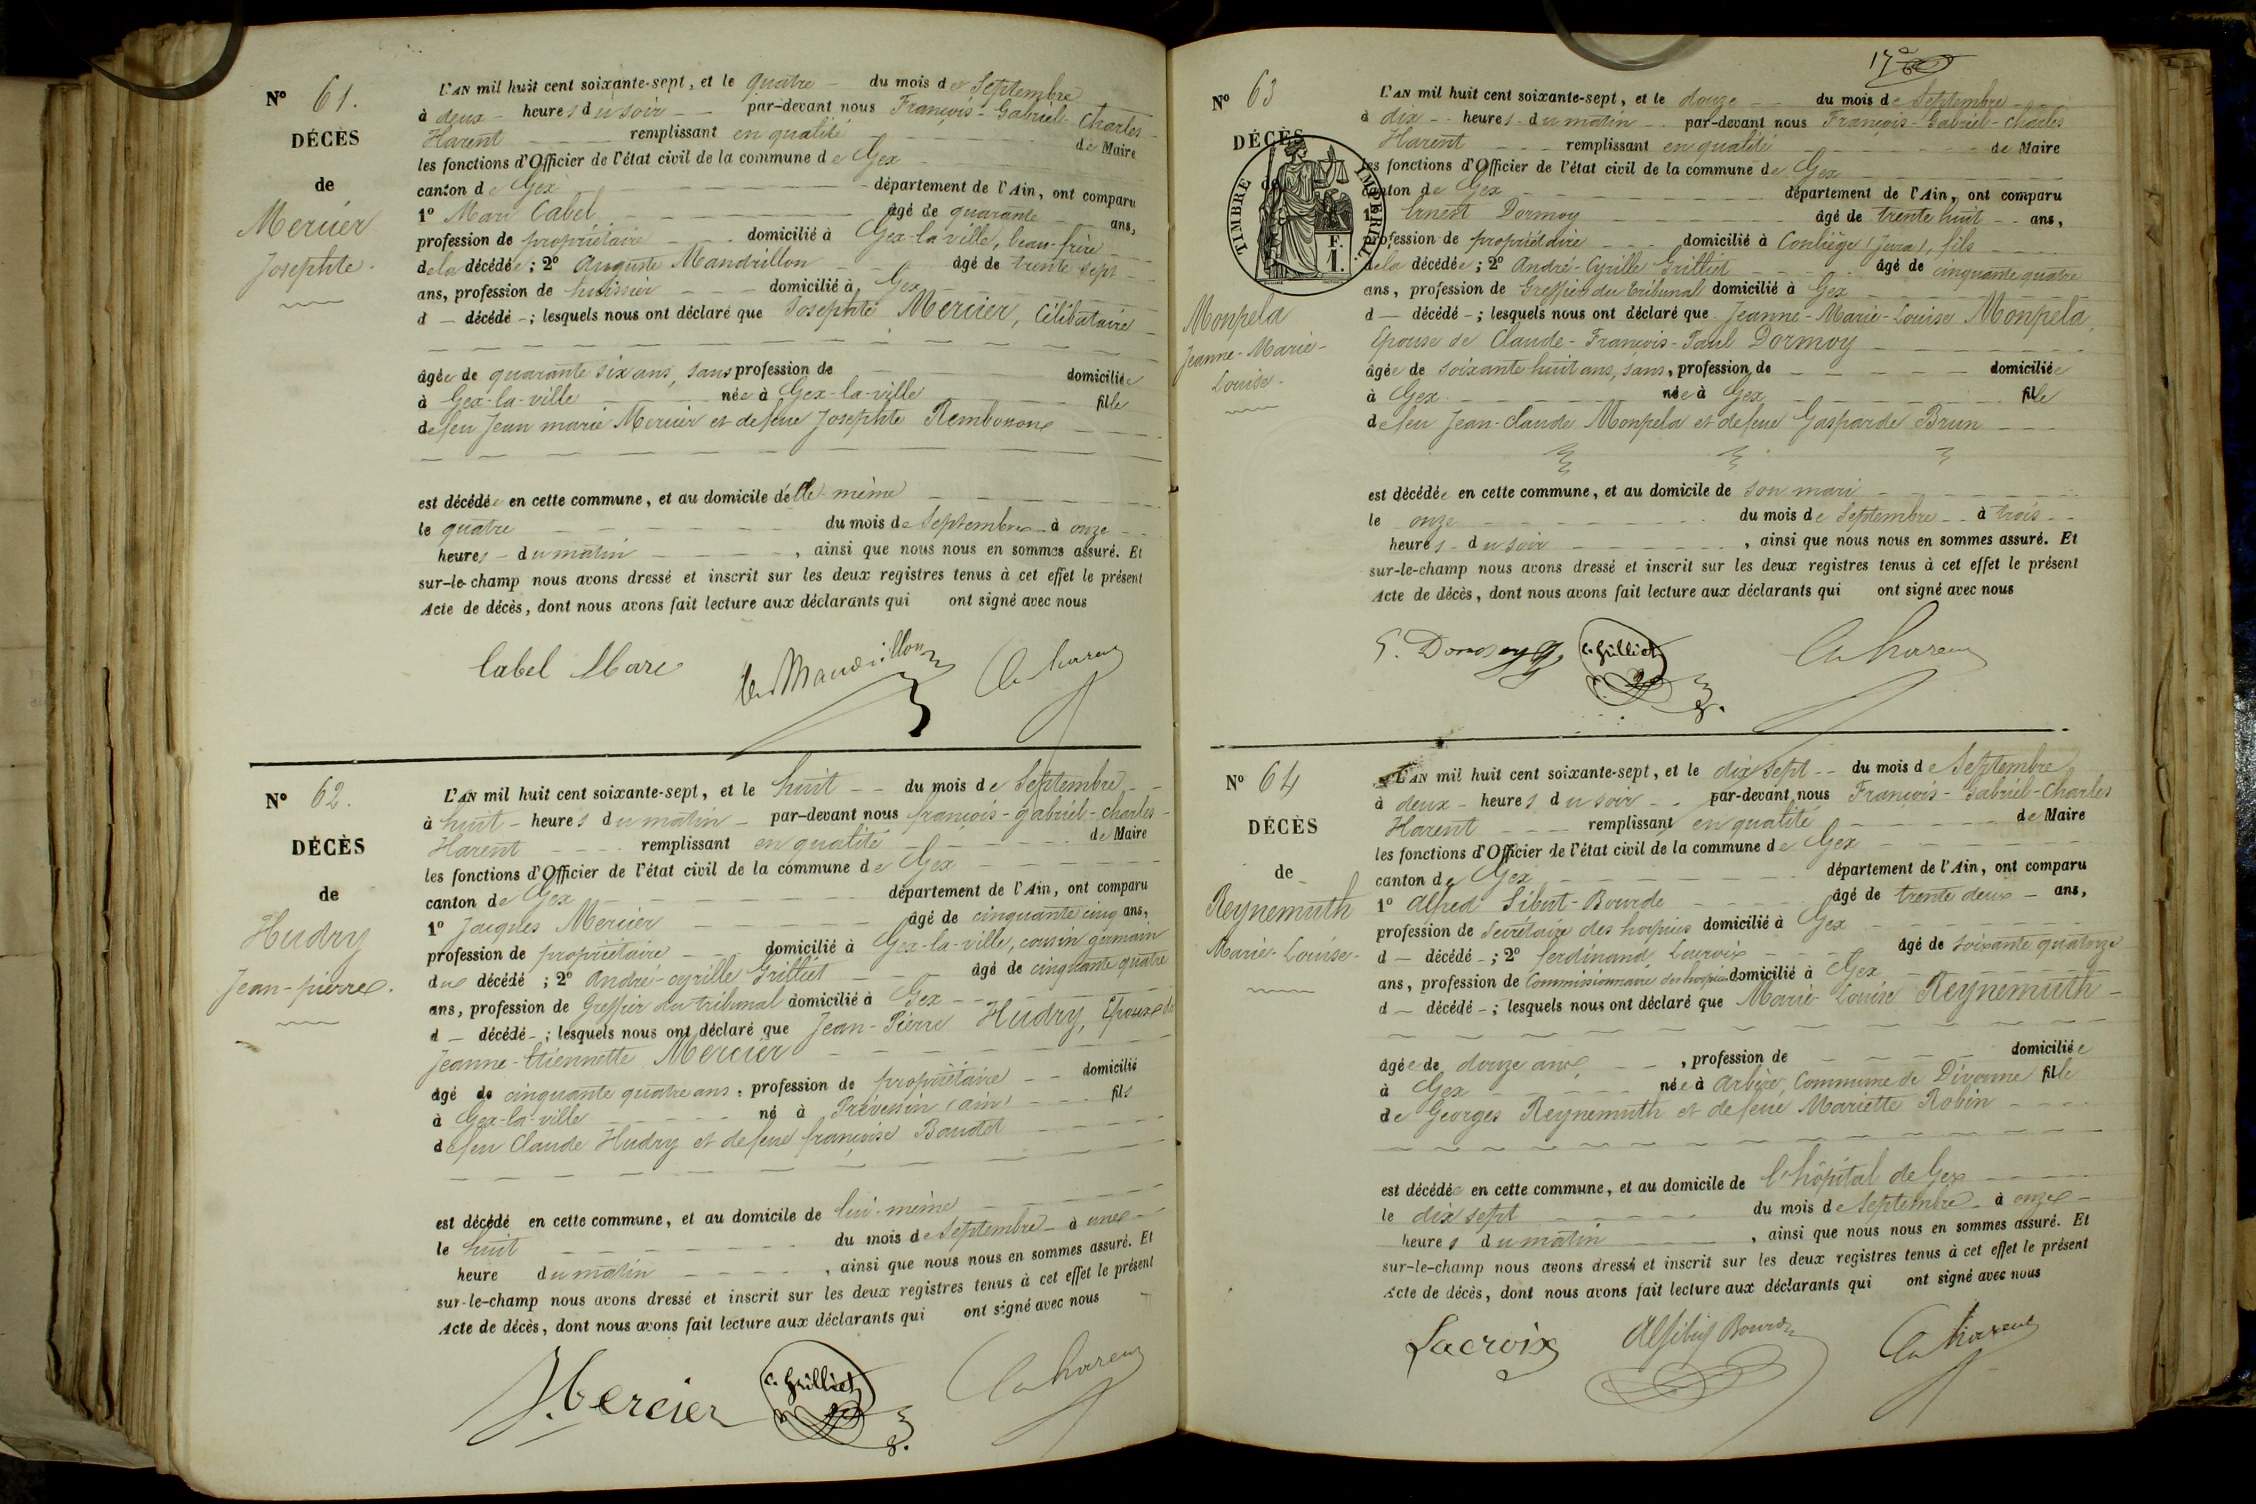 N° 61.
DÉCÈS
de
Mercier
Josephte.
L'AN mil huit cent soixante-sept, et le quatre du mois de Septembre
à deux heures du soir par-devant nous François-Gabriel-Charles
Harent remplissant en qualité de Maire
les fonctions d'Officier de l'état civil de la commune de Gex
canton de Gex département de l'Ain, ont comparu
1° Marc Cabel âgé de quarante ans,
profession de propriétaire domicilié à Gex-la-ville, beau-frère
de la décédée; 2° Auguste Mandrillon âgé de trente sept
ans, profession de huissier domicilié à Gex
d — décédé -; lesquels nous ont déclaré que Josephte Mercier, Célibataire
âgée de quarante six ans, sans profession de domiciliée
à Gex-la-ville née à Gex-la-ville fille
de feu Jean marie Mercier et de feue Josephte
est décédée en cette commune, et au domicile d'elle-même
le quatre du mois de Septembre à onze
heures du matin, ainsi que nous nous en sommes assuré. Et
sur-le-champ nous avons dressé et inscrit sur les deux registres tenus à cet effet le présent
Acte de décès, dont nous avons fait lecture aux déclarants qui ont signé avec nous
Cabel Marc Mandrillon Ch harent
N° 62.
DÉCÈS
de
Hudry
Jean-pierre.
L'AN mil huit cent soixante-sept, et le huit du mois de Septembre
à huit heures du matin par-devant nous françois-gabriel-charles
Harent remplissant en qualité de Maire
les fonctions d'Officier de l'état civil de la commune de Gex
canton de Gex département de l'Ain, ont comparu
1° Jacques Mercier âgé de cinquante cinq ans,
profession de propriétaire domicilié à Gex-la-ville, cousin germain
du décédé; 2° André-cyrille Grilliet âgé de cinquante quatre
ans, profession de Greffier du tribunal domicilié à Gex
d — décédé -; lesquels nous ont déclaré que Jean-Pierre Hudry, Epoux de
Jeanne-Etiennette Mercier
âgé de cinquante quatre ans, profession de propriétaire domicilié
à Gex-la-ville né à Prévessin (ain) fils
de feu Claude Hudry et de feue françoise Baudet
est décédé en cette commune, et au domicile de lui-même
le huit du mois de Septembre à une
heure du matin, ainsi que nous nous en sommes assuré. Et
sur-le-champ nous avons dressé et inscrit sur les deux registres tenus à cet effet le présent
Acte de décès, dont nous avons fait lecture aux déclarants qui ont signé avec nous
J. Mercier C. Grilliet Ch harent
17
N° 63
DÉCÈS
de
TIMBRE IMPÉRIAL.
F.
1.
Monpela
Jeanne-Marie-
Louise.
L'AN mil huit cent soixante-sept, et le douze du mois de Septembre
à dix heures du matin par-devant nous François-Gabriel-Charles
Harent remplissant en qualité de Maire
les fonctions d'Officier de l'état civil de la commune de Gex
canton de Gex département de l'Ain, ont comparu
1° Ernest Dormoy âgé de trente huit ans,
profession de propriétaire domicilié à Conliège (Jura), fils
de la décédée; 2° André-Cyrille Grilliet âgé de cinquante quatre
ans, profession de Greffier du tribunal domicilié à Gex
d — décédé -; lesquels nous ont déclaré que Jeanne-Marie-Louise Monpela,
Epouse de Claude-François-Paul Dormoy
âgée de soixante huit ans, sans profession de domiciliée
à Gex née à Gex fille
de feu Jean-Claude Monpela et de feue Gasparde Brun
est décédée en cette commune, et au domicile de son mari
le onze du mois de Septembre à trois
heures du soir, ainsi que nous nous en sommes assuré. Et
sur-le-champ nous avons dressé et inscrit sur les deux registres tenus à cet effet le présent
Acte de décès, dont nous avons fait lecture aux déclarants qui ont signé avec nous
E. Dormoy C. Grilliet Ch harent
N° 64
DÉCÈS
de
Reynemuth
Marie-Louise.
L'AN mil huit cent soixante-sept, et le dix sept du mois de Septembre
à deux heures du soir par-devant nous François-Gabriel-Charles
Harent remplissant en qualité de Maire
les fonctions d'Officier de l'état civil de la commune de Gex
canton de Gex département de l'Ain, ont comparu
1° Alfred Sibut-Bourde âgé de trente deux ans,
profession de Secrétaire des hospices domicilié à Gex
d — décédé -; 2° ferdinand Lacroix âgé de soixante quatorze
ans, profession de Commissionnaire des hospices domicilié à Gex
d — décédé -; lesquels nous ont déclaré que Marie Louise Reynemuth
âgée de douze ans, profession de domiciliée
à Gex née à Arbère, Commune de Divonne fille
de Georges Reynemuth et de feue Mariette Robin
est décédée en cette commune, et au domicile de l'hôpital de Gex
le dix sept du mois de Septembre à onze
heures du matin, ainsi que nous nous en sommes assuré. Et
sur-le-champ nous avons dressé et inscrit sur les deux registres tenus à cet effet le présent
Acte de décès, dont nous avons fait lecture aux déclarants qui ont signé avec nous
Lacroix Ch harent